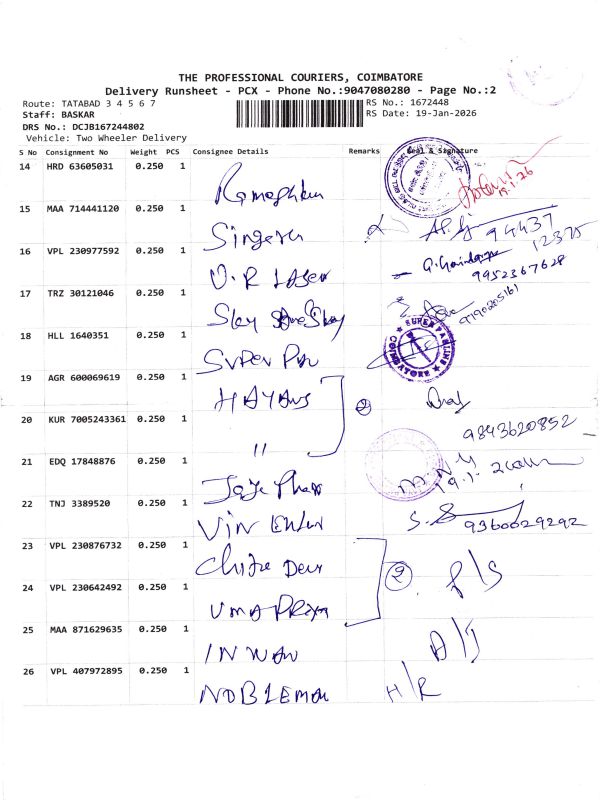 THE PROFESSIONAL COURIERS, COIMBATORE
Delivery Runsheet - PCX - Phone No.:9047080280 - Page No.:2
Route: TATABAD 3 4 5 6 7
RS No.: 1672448
Staff: BASKAR
RS Date: 19-Jan-2026
DRS No.: DCJB167244802
Vehicle: Two Wheeler Delivery
S No Consignment No Weight PCS Consignee Details Remarks Seal & Signature
14 HRD 63605031 0.250 1
15 MAA 714441120 0.250 1 Singeru 94437
12375
16 VPL 230977592 0.250 1 V.R LASER
9952367628
17 TRZ 30121046 0.250 1 Sky
9190205161
18 HLL 1640351 0.250 1 SUPER
SUPER PAINTS COIMBATORE
19 AGR 600069619 0.250 1 2
20 KUR 7005243361 0.250 1 " 9843620852
21 EDQ 17848876 0.250 1
22 TNJ 3389520 0.250 1 Vin 9360029292
23 VPL 230876732 0.250 1 Chitra Devi 2
24 VPL 230642492 0.250 1 UMA PRIYA P/S
25 MAA 871629635 0.250 1 A/J
26 VPL 407972895 0.250 1 NOBLEMAN H/R